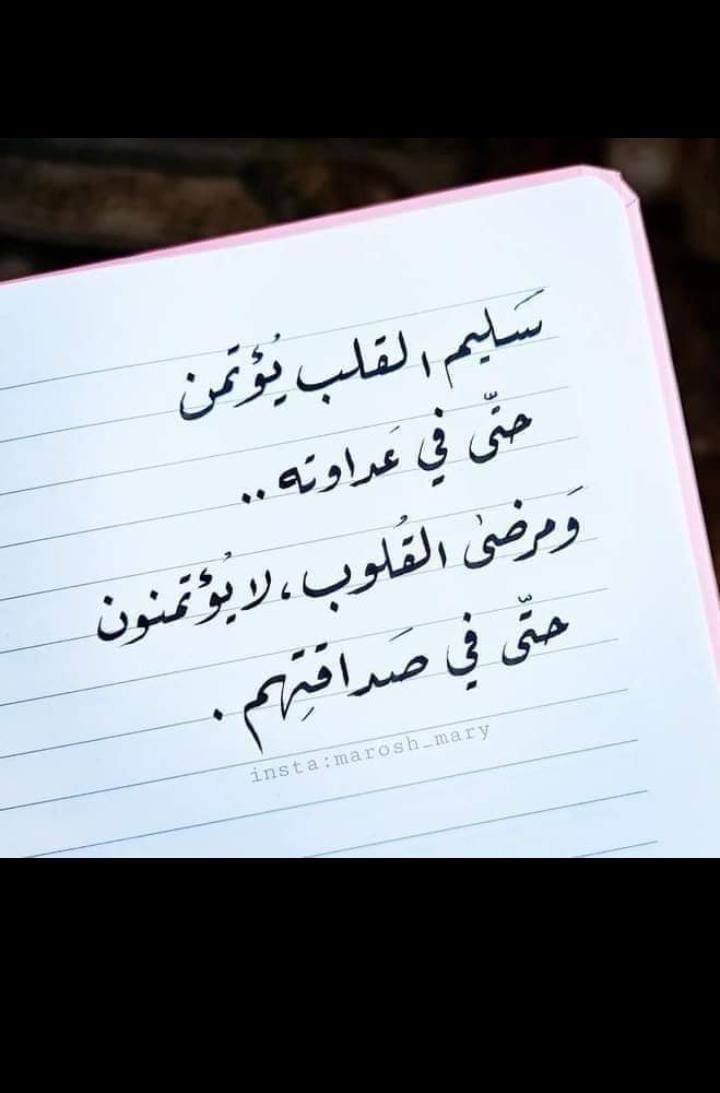 سَليم القلب يُؤتمن
حتّى في عَداوته ..
وَمرضىٰ القُلوب، لا يُؤتمنون
حتّى في صَداقتِهم .
insta:marosh_mary